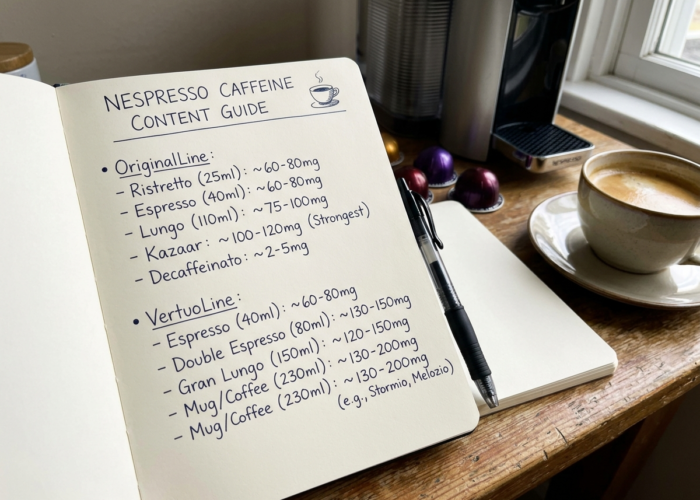 NESPRESSO CAFFEINE
CONTENT GUIDE
• OriginalLine:
– Ristretto (25ml): ~60-80mg
– Espresso (40ml): ~60-80mg
– Lungo (110ml): ~75-100mg
– Kazaar: ~100-120mg (Strongest)
– Decaffeinato: ~2-5mg
• VertuoLine:
– Espresso (40ml): ~60-80mg
– Double Espresso (80ml): ~130-150mg
– Gran Lungo (150ml): ~120-150mg
– Mug/Coffee (230ml): ~130-200mg
– Mug/Coffee (230ml): ~130-200mg
(e.g., Stormio, Melozio)
NESPRESSO